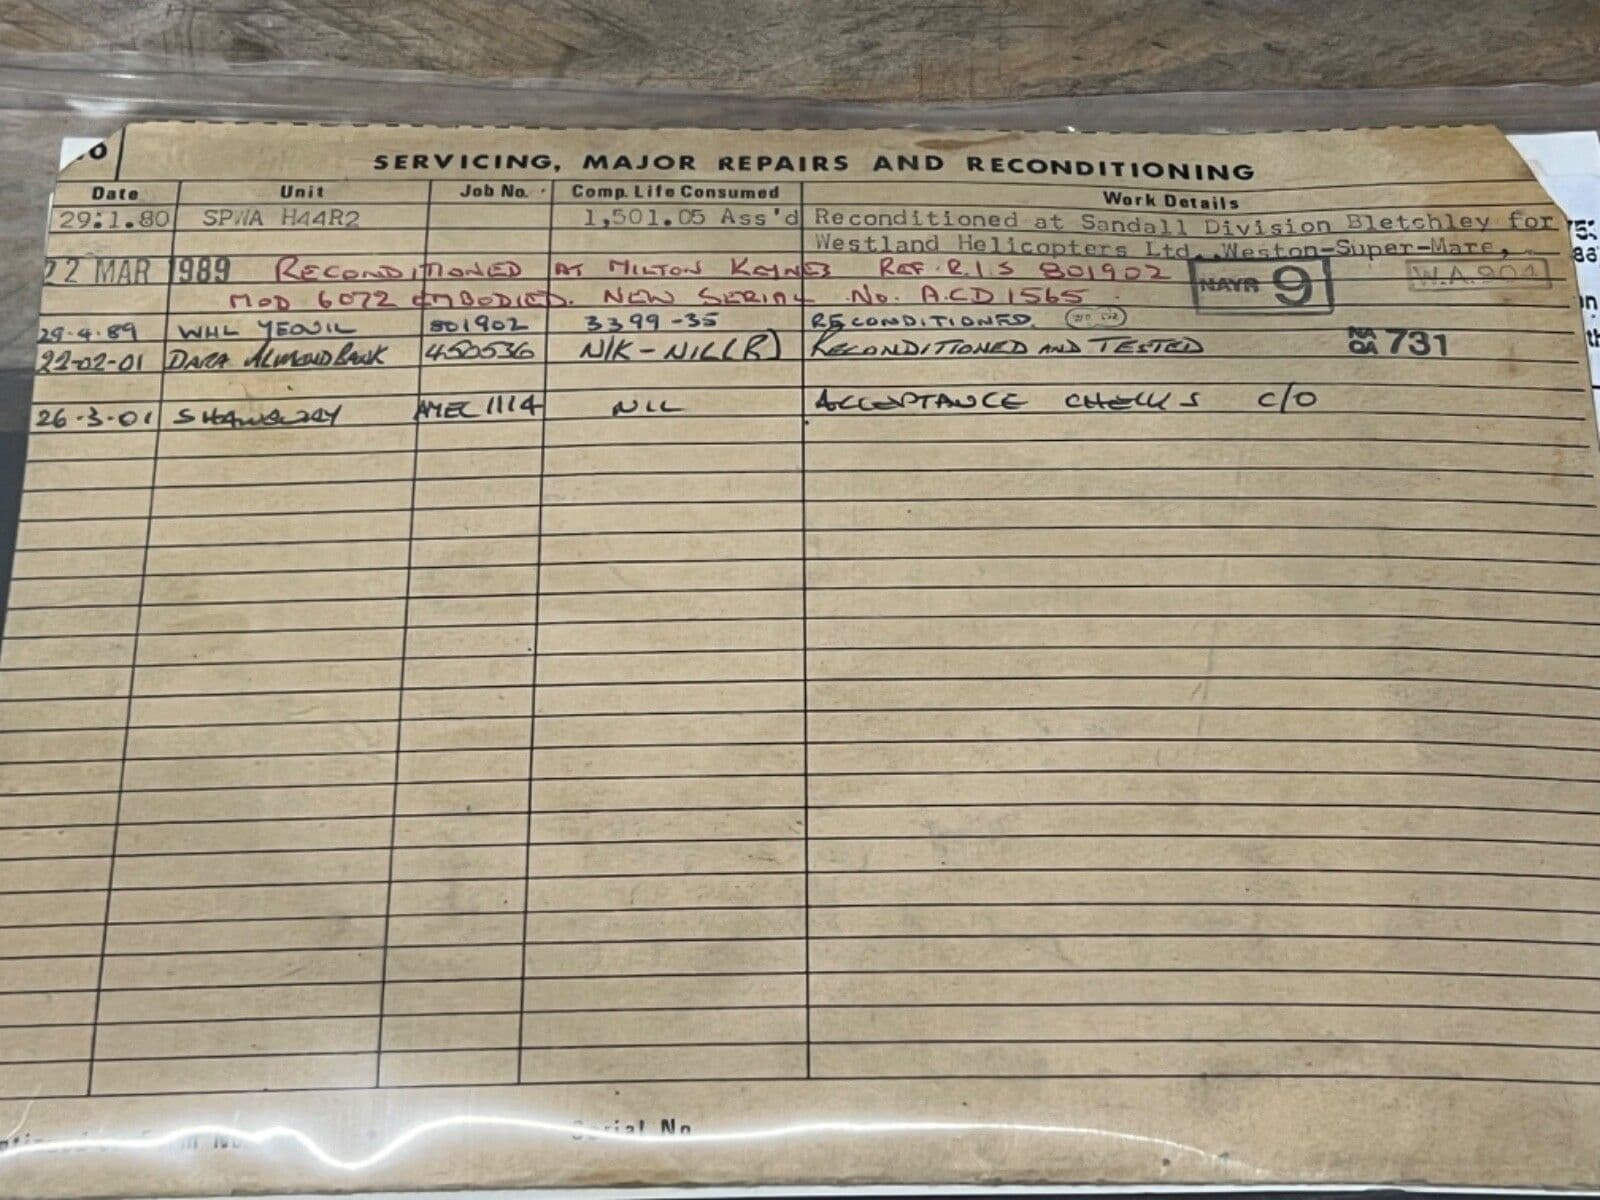 SERVICING, MAJOR REPAIRS AND RECONDITIONING
Date Unit Job No. Comp. Life Consumed Work Details
29:1.80 SPWA H44R2 1,501.05 Ass'd Reconditioned at Sandall Division Bletchley for
Westland Helicopters Ltd. Weston-Super-Mare,
22 MAR 1989 RECONDITIONED AT MILTON KEYNES REF. R.I.S 801902 9 W.A.904
MOD 6072 EMBODIED. NEW SERIAL No. A.CD 1565
29.4.89 WHL YEOVIL 801902 3399-35 RECONDITIONED
22-02-01 DARA ALMONDBANK 450536 N/K-NIL(R) RECONDITIONED AND TESTED 731
26.3.01 SHAWBURY AMEC 1114 NIL ACCEPTANCE CHECKS C/O
Serial No